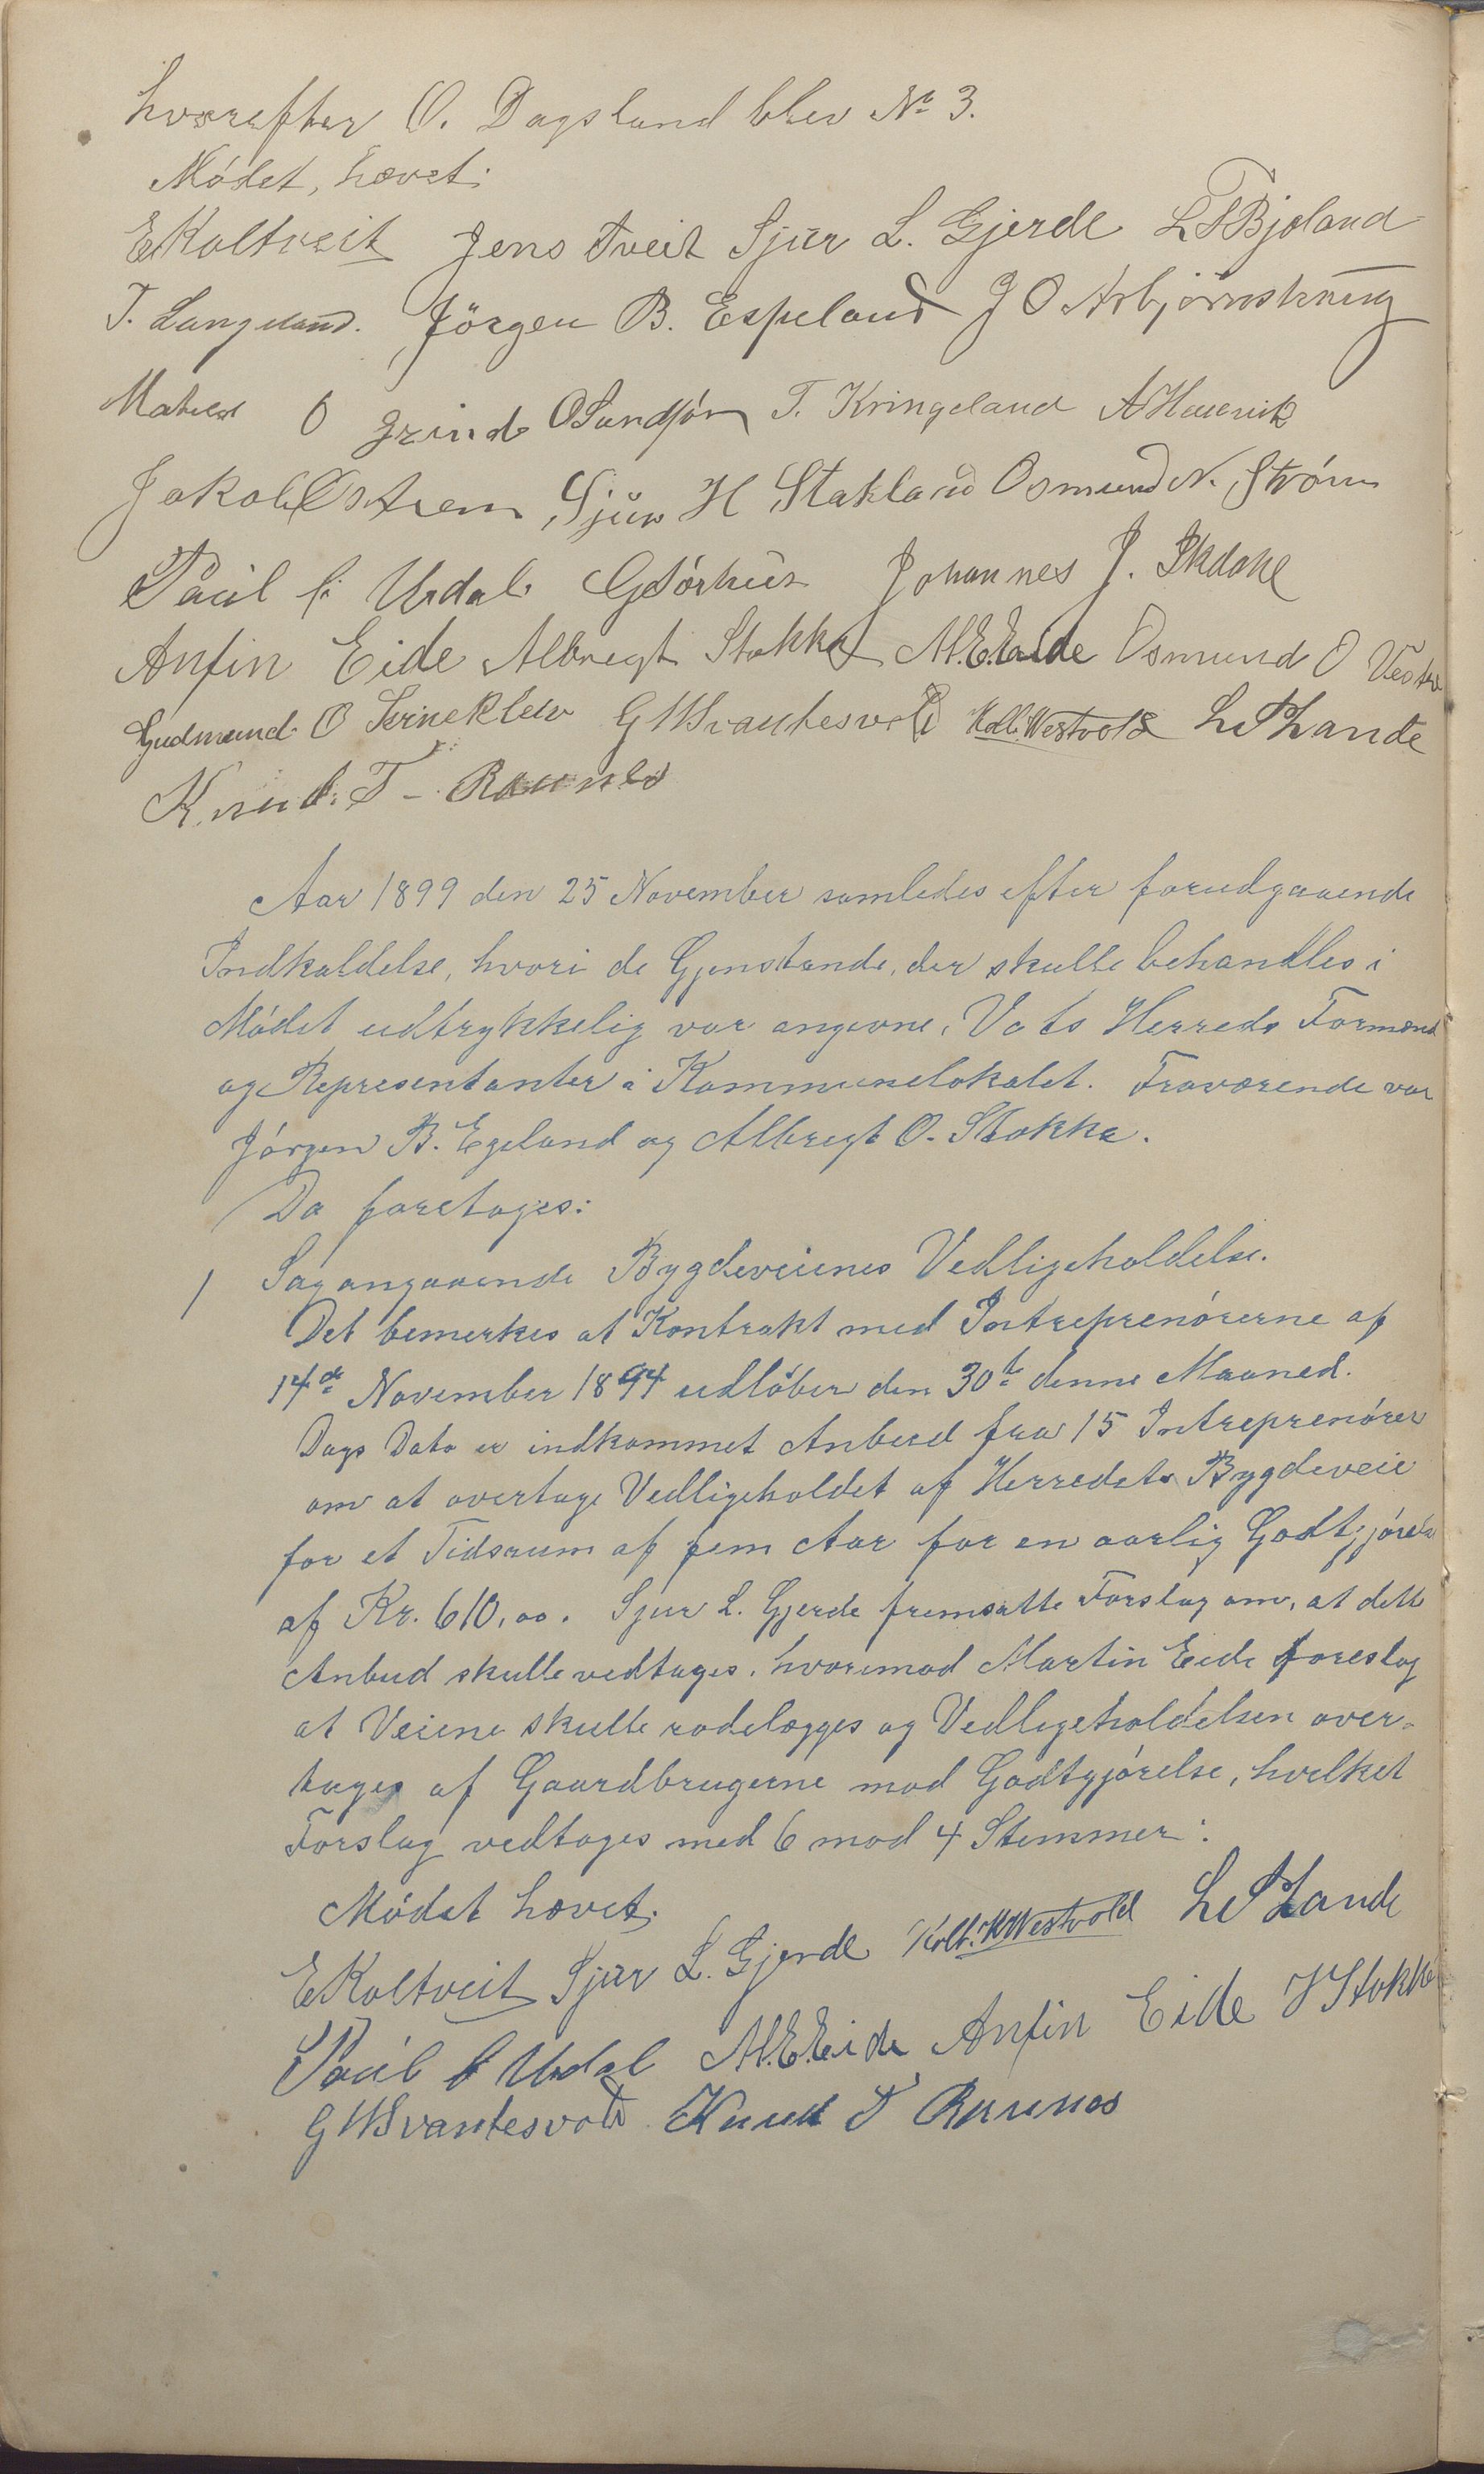 hvorefter O. Dagsland blev No 3.
Mödet, hævet.
E Koltveit Jens Tveit Sjur L. Gjerde L T Bjoland
T. Langeland. Jörgen B. Espeland J O Asbjörns
O Grinde O Sandför T. Kringeland A Hauevik
Jakob Østrem Sjur H Stakland Osmund N. Ström
Paul Urdal Johannes J.
Anfin Eide Albregt Stokka M.E. Eide Osmund O
Gudmund O G W Svantesvold Kolb. Westvold L Lande
Knud T – Raunes
Aar 1899 den 25 November samledes efter forudgaaende
Indkaldelse, hvori de Gjenstande, der skulle behandles i
Mödet udtrykkelig var angevne, Vats Herreds Formænd
og Representanter i Kommunelokalet. Fraværende var
Jörgen B. Egeland og Albregt O. Stokka.
Da foretoges:
1 Sag angaaende Bygdeveienes Vedligeholdelse.
Det bemerkes at Kontrakt med Intreprenörerne af
14de November 1894 udlöber den 30te denne Maaned.
Dags Dato er indkommet Anbud fra 15 Intreprenörer
om at overtage Vedligeholdet af Herredets Bygdeveie
for et Tidsrum af fem Aar for en aarlig Godtgjörelse
af Kr. 610,00. Sjur L. Gjerde fremsatte Forslag om, at dette
Anbud skulle vedtages, hvorimod Martin Eide foreslog
at Veiene skulle rodelægges og Vedligeholdelsen over-
tages af Gaardbrugerne mod Godtgjörelse, hvilket
Forslag vedtoges med 6 mod 4 Stemmer.
Mödet hævet.
E Koltveit Sjur L. Gjerde Kolb. K Westvold L Lande
Paul Urdal M.E. Eide Anfin Eide Stokke
G W Svantesvold Knud T Raunes